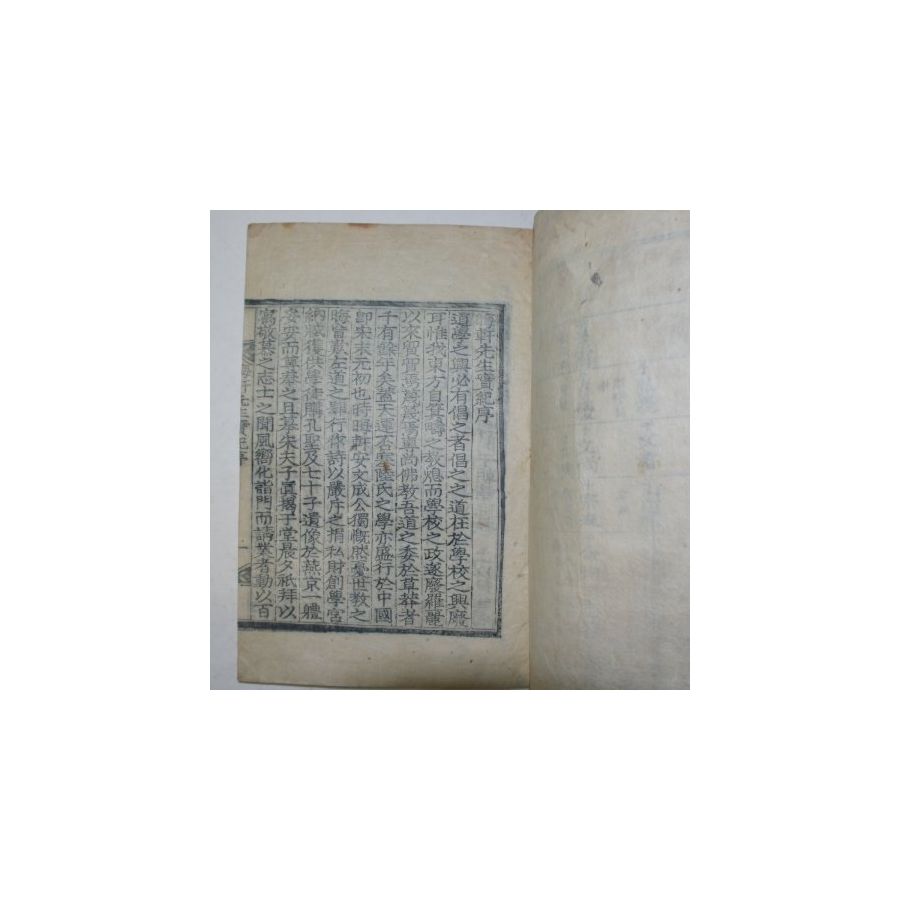 晦軒先生實紀序
道學之興必有倡之者倡之之道在於學校之興廢
耳惟我東方自箕疇之敎熄而學校之政遂廢羅麗
以來貿貿焉蒙蒙焉道喪佛敎吾道之委於草莽者
千有餘年矣蓋天運否塞陸氏之學亦盛行於中國
即宋末元初也時晦軒安文成公獨慨然憂世敎之
晦盲懲左道之肆行作詩以嚴斥之捐私財創學宮
納臧獲供學徒購孔聖及七十子遺像於燕京一體
妥安而尊奉之且摹朱夫子眞揭于堂晨夕祇拜以
寓敬慕之志士之聞風嚮化詣門而請業者動以百
晦軒先生實紀序 一